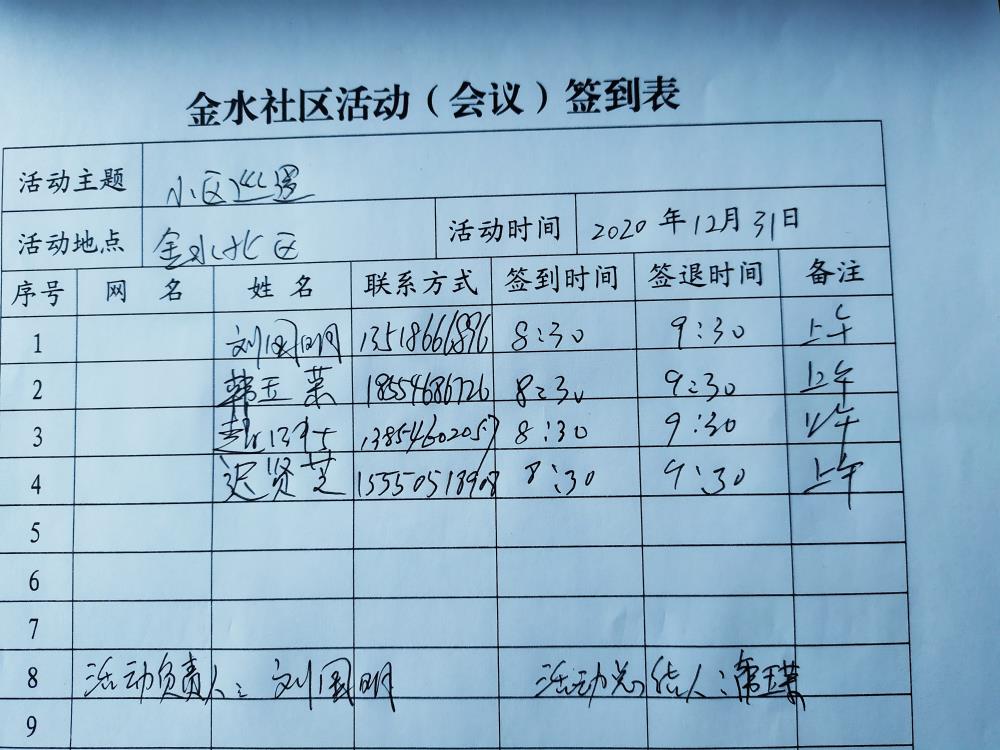 金水社区活动（会议）签到表
活动主题 小区巡逻
活动地点 金水北区 活动时间 2020年12月31日
序号 网名 姓名 联系方式 签到时间 签退时间 备注
1 刘国明 13518666896 8:30 9:30 上午
2 韩玉荣 18554686726 8:30 9:30 上午
3 13854602057 8:30 9:30 上午
4 迟贤芝 15550518908 8:30 9:30 上午
5
6
7
8 活动负责人：刘国明 活动总结人：韩玉荣
9